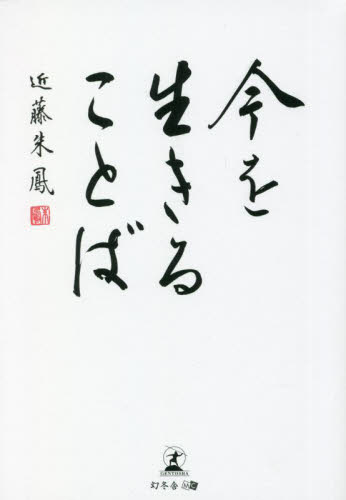 今を
生きる
ことば
近藤朱鳳
GENTOSHA
幻冬舎 MC